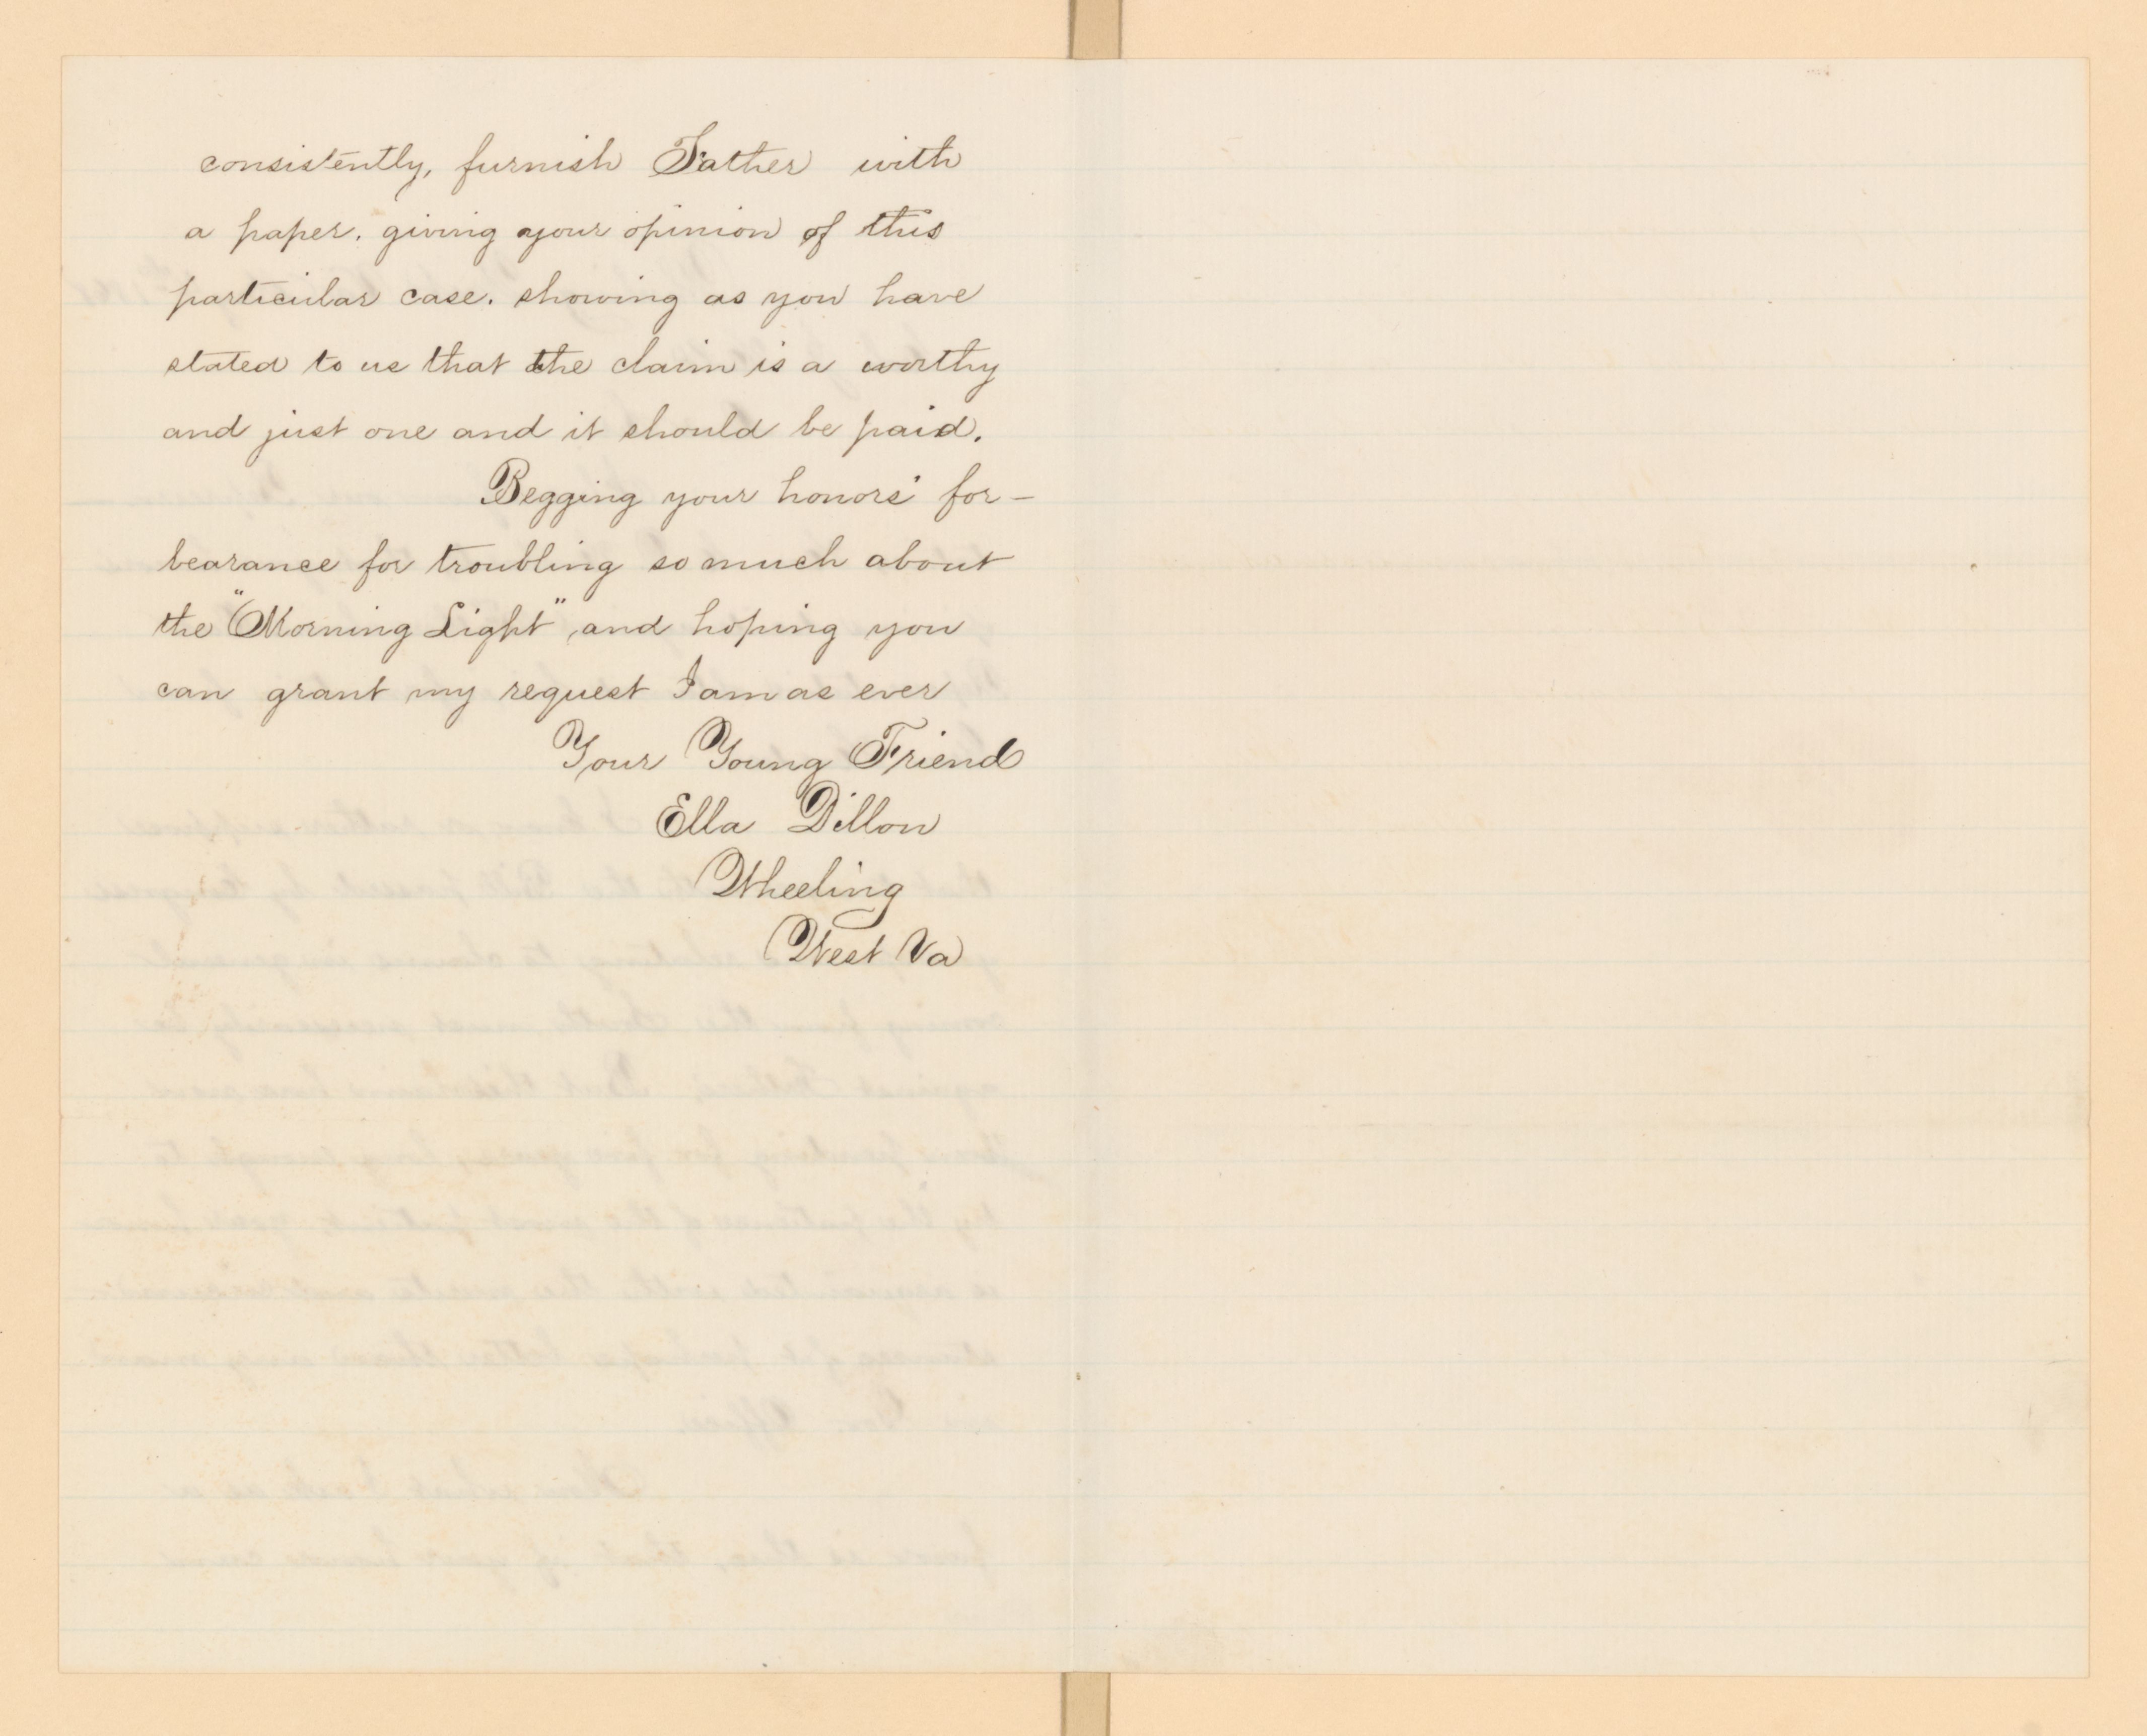 consistently, furnish Father with
a paper. giving your opinion of this
particular case. showing as you have
stated to us that the claim is a worthy
and just one and it should be paid.
Begging your honors' for-
bearance for troubling so much about
the "Morning Light", and hoping you
can grant my request I am as ever
Your Young Friend
Ella Dillon
Wheeling
West Va